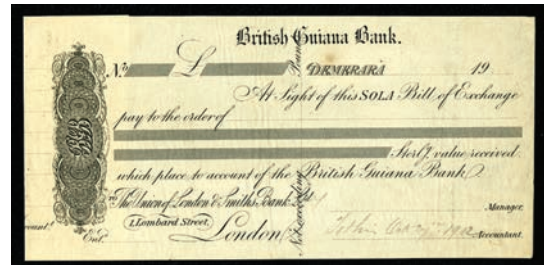 British Guiana Bank.
No. £ DEMERARA 19
At Sight of this SOLA Bill of Exchange
pay to the order of
Sterlg. value received.
which place to account of the British Guiana Bank
To The Union of London & Smiths Bank Ld.
Manager
1, Lombard Street,
London
Accountant.
Ent.
BGB
Not exceeding
Pounds